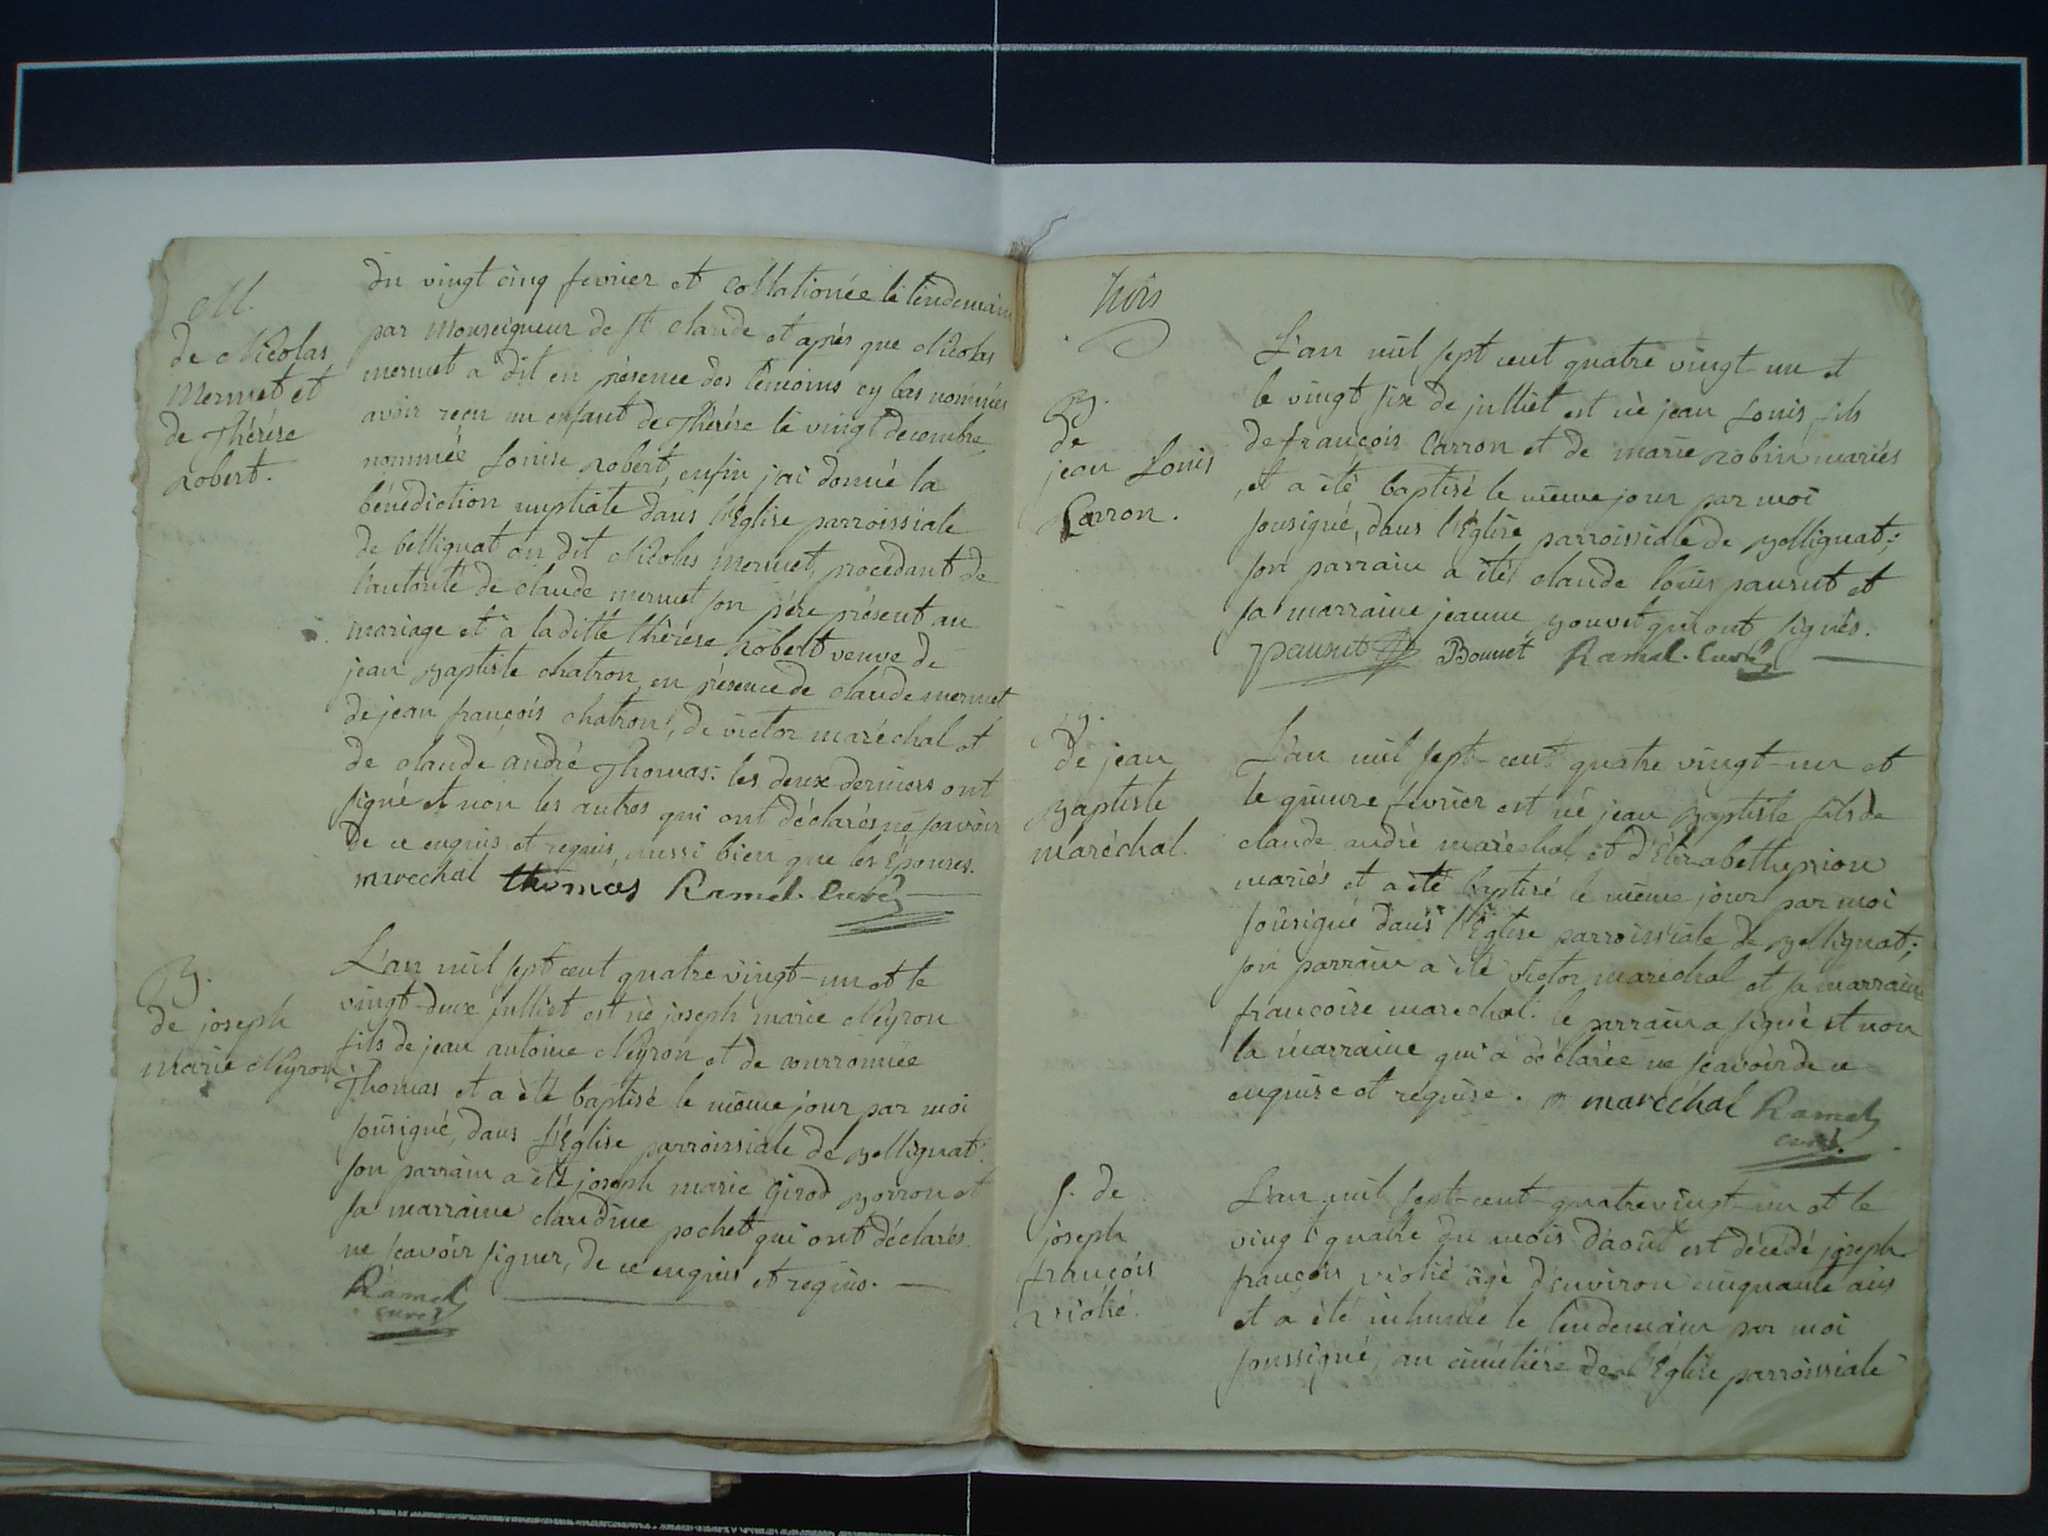 M.
de Nicolas
Mermet et
de Thérése
Robert.
du vingt cinq fevrier et collationée le lendemain
par Monseigneur de St Claude et aprés que Nicolas
mermet a dit en présence des témoins cy bas nommés
avoir reçu un enfant de Thérése le vingt decembre
nommée Louise Robért, enfin j'ai donné la
bénédiction nuptiale dans l'Eglise parroissiale
de belligñat au dit Nicolas Mermet, procedant de
l'autorité de claude mermet son pére présent au
mariage et à laditte thérése Robért veuve de
jean Baptiste chatron, en présence de claude mermet
de jean françois chatron, de victor maréchal et
de claude andré Thomas: les deux derniers ont
signé et non les autres qui ont déclarés ne sçavoir
de ce enquis et requis, aussi bien que les Epouses.
marechal thomas Ramel. Curé
B.
de joseph
marie Neyron
L'an mil sept cent quatre vingt-un et le
vingt-deux julliet est né joseph marie Neyron
fils de jean antoine Neyron et de courronnée
Thomas et a èté baptisé le même jour par moi
sousigné, dans l'Eglise parroissiale de Bellignat:
son parrain a èté joseph marie Girod
sa marraine claudine pochet qui ont déclarés
ne sçavoir signer, de ce enquis et requis.
Ramel
curé
trois
B.
de
jean Louis
Carron.
L'an mil sept cent quatre vingt-un et
le vingt six de julliet est nè jean Louis fils
de françois Carron et de marie Robin mariés
et a èté baptisé le même jour par moi
sousigné, dans l'Eglise parroissiale de Bellignat;
son parrain a èté claude louis paunet et
sa marraine jeanne Bouvet qui ont signés.
paunet Bouvet Ramel. Curé
B.
de jean
Baptiste
maréchal.
L'an mil sept-cent quatre vingt-un et
le quinze fevrier est né jean Baptiste fils de
claude andrè maréchal et d'Elizabeth prion
mariés et a èté baptisé le même jour par moi
sousigné dans l'Eglise parroissiale de Bellignat;
son parrain a èté victor maréchal et sa marraine
françoise marechal: le parrain a signé et non
la marraine qui a déclarée ne sçavoir de ce
enquise et requise. maréchal Ramel
curé.
S. de
joseph
françois
violié.
L'an mil sept-cent-quatrevingt-un et le
vingt quatre du mois d'aoùt est décédé joseph
françois violié âgé d'environ cinquante ans
et a èté inhumé le lendemain par moi
soussigné, au cimétiére de l'Eglise parroissiale